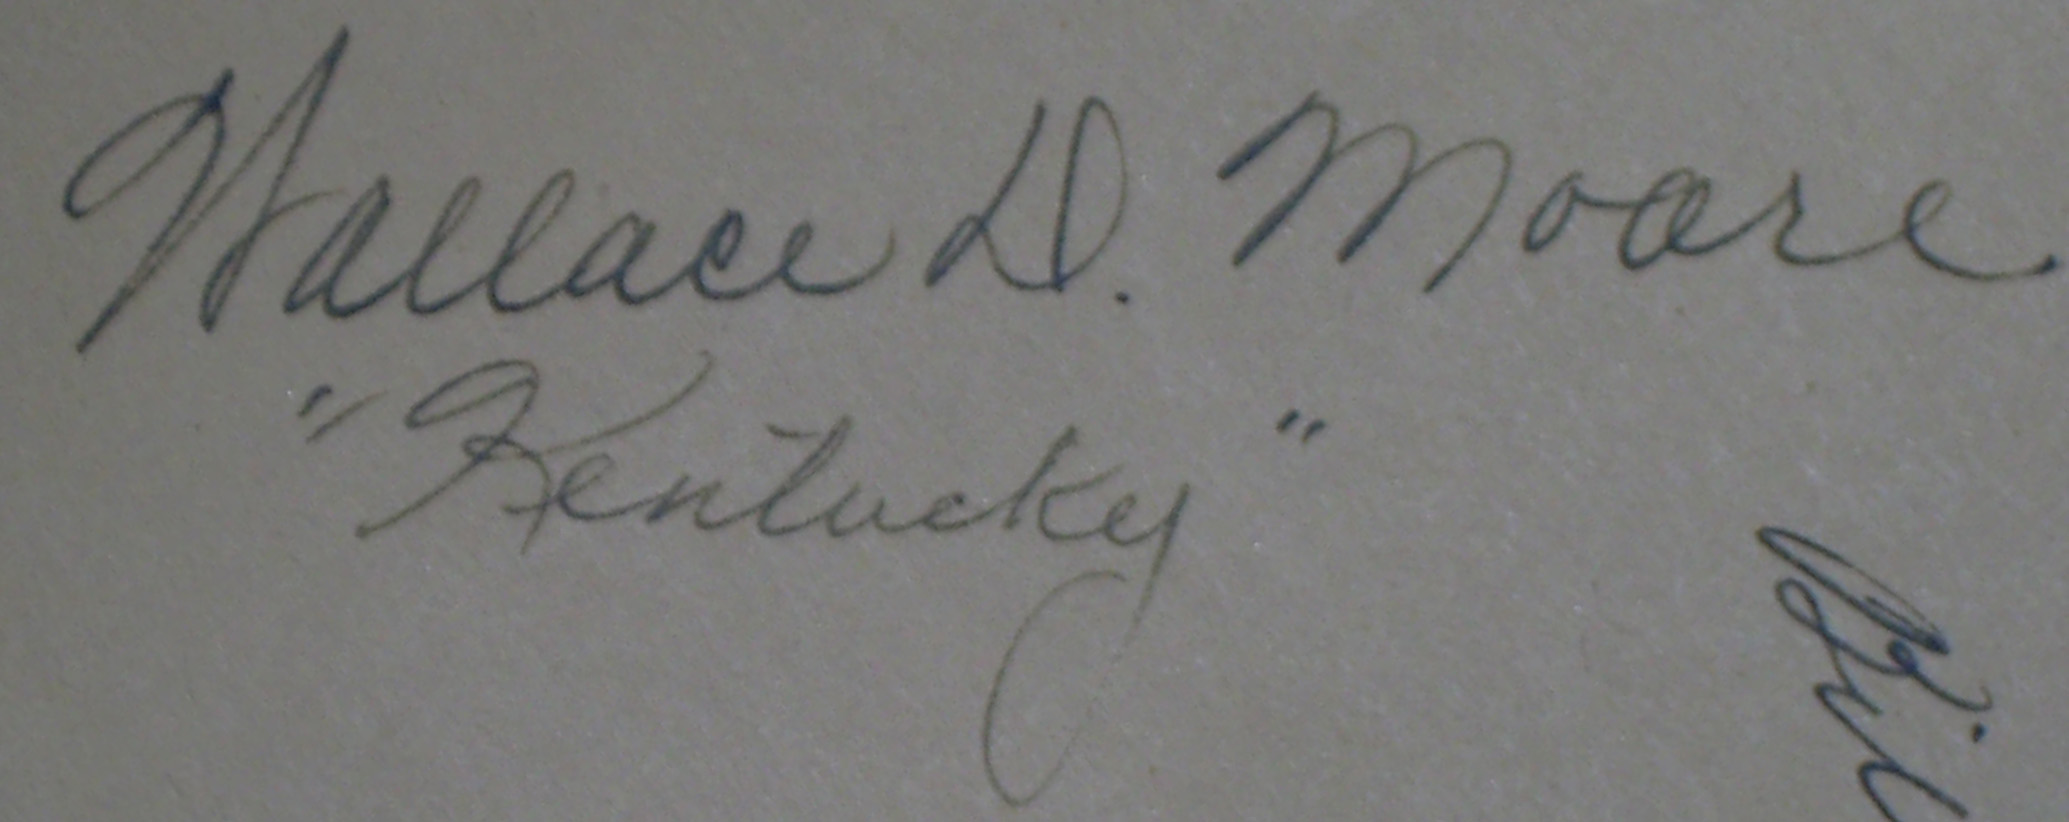 Wallace D. Moore
"Kentucky"